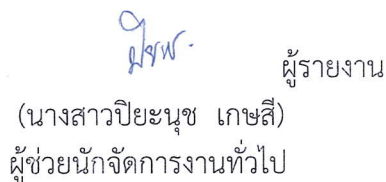 ผู้รายงาน
(นางสาวปิยะนุช เกษสี)
ผู้ช่วยนักจัดการงานทั่วไป